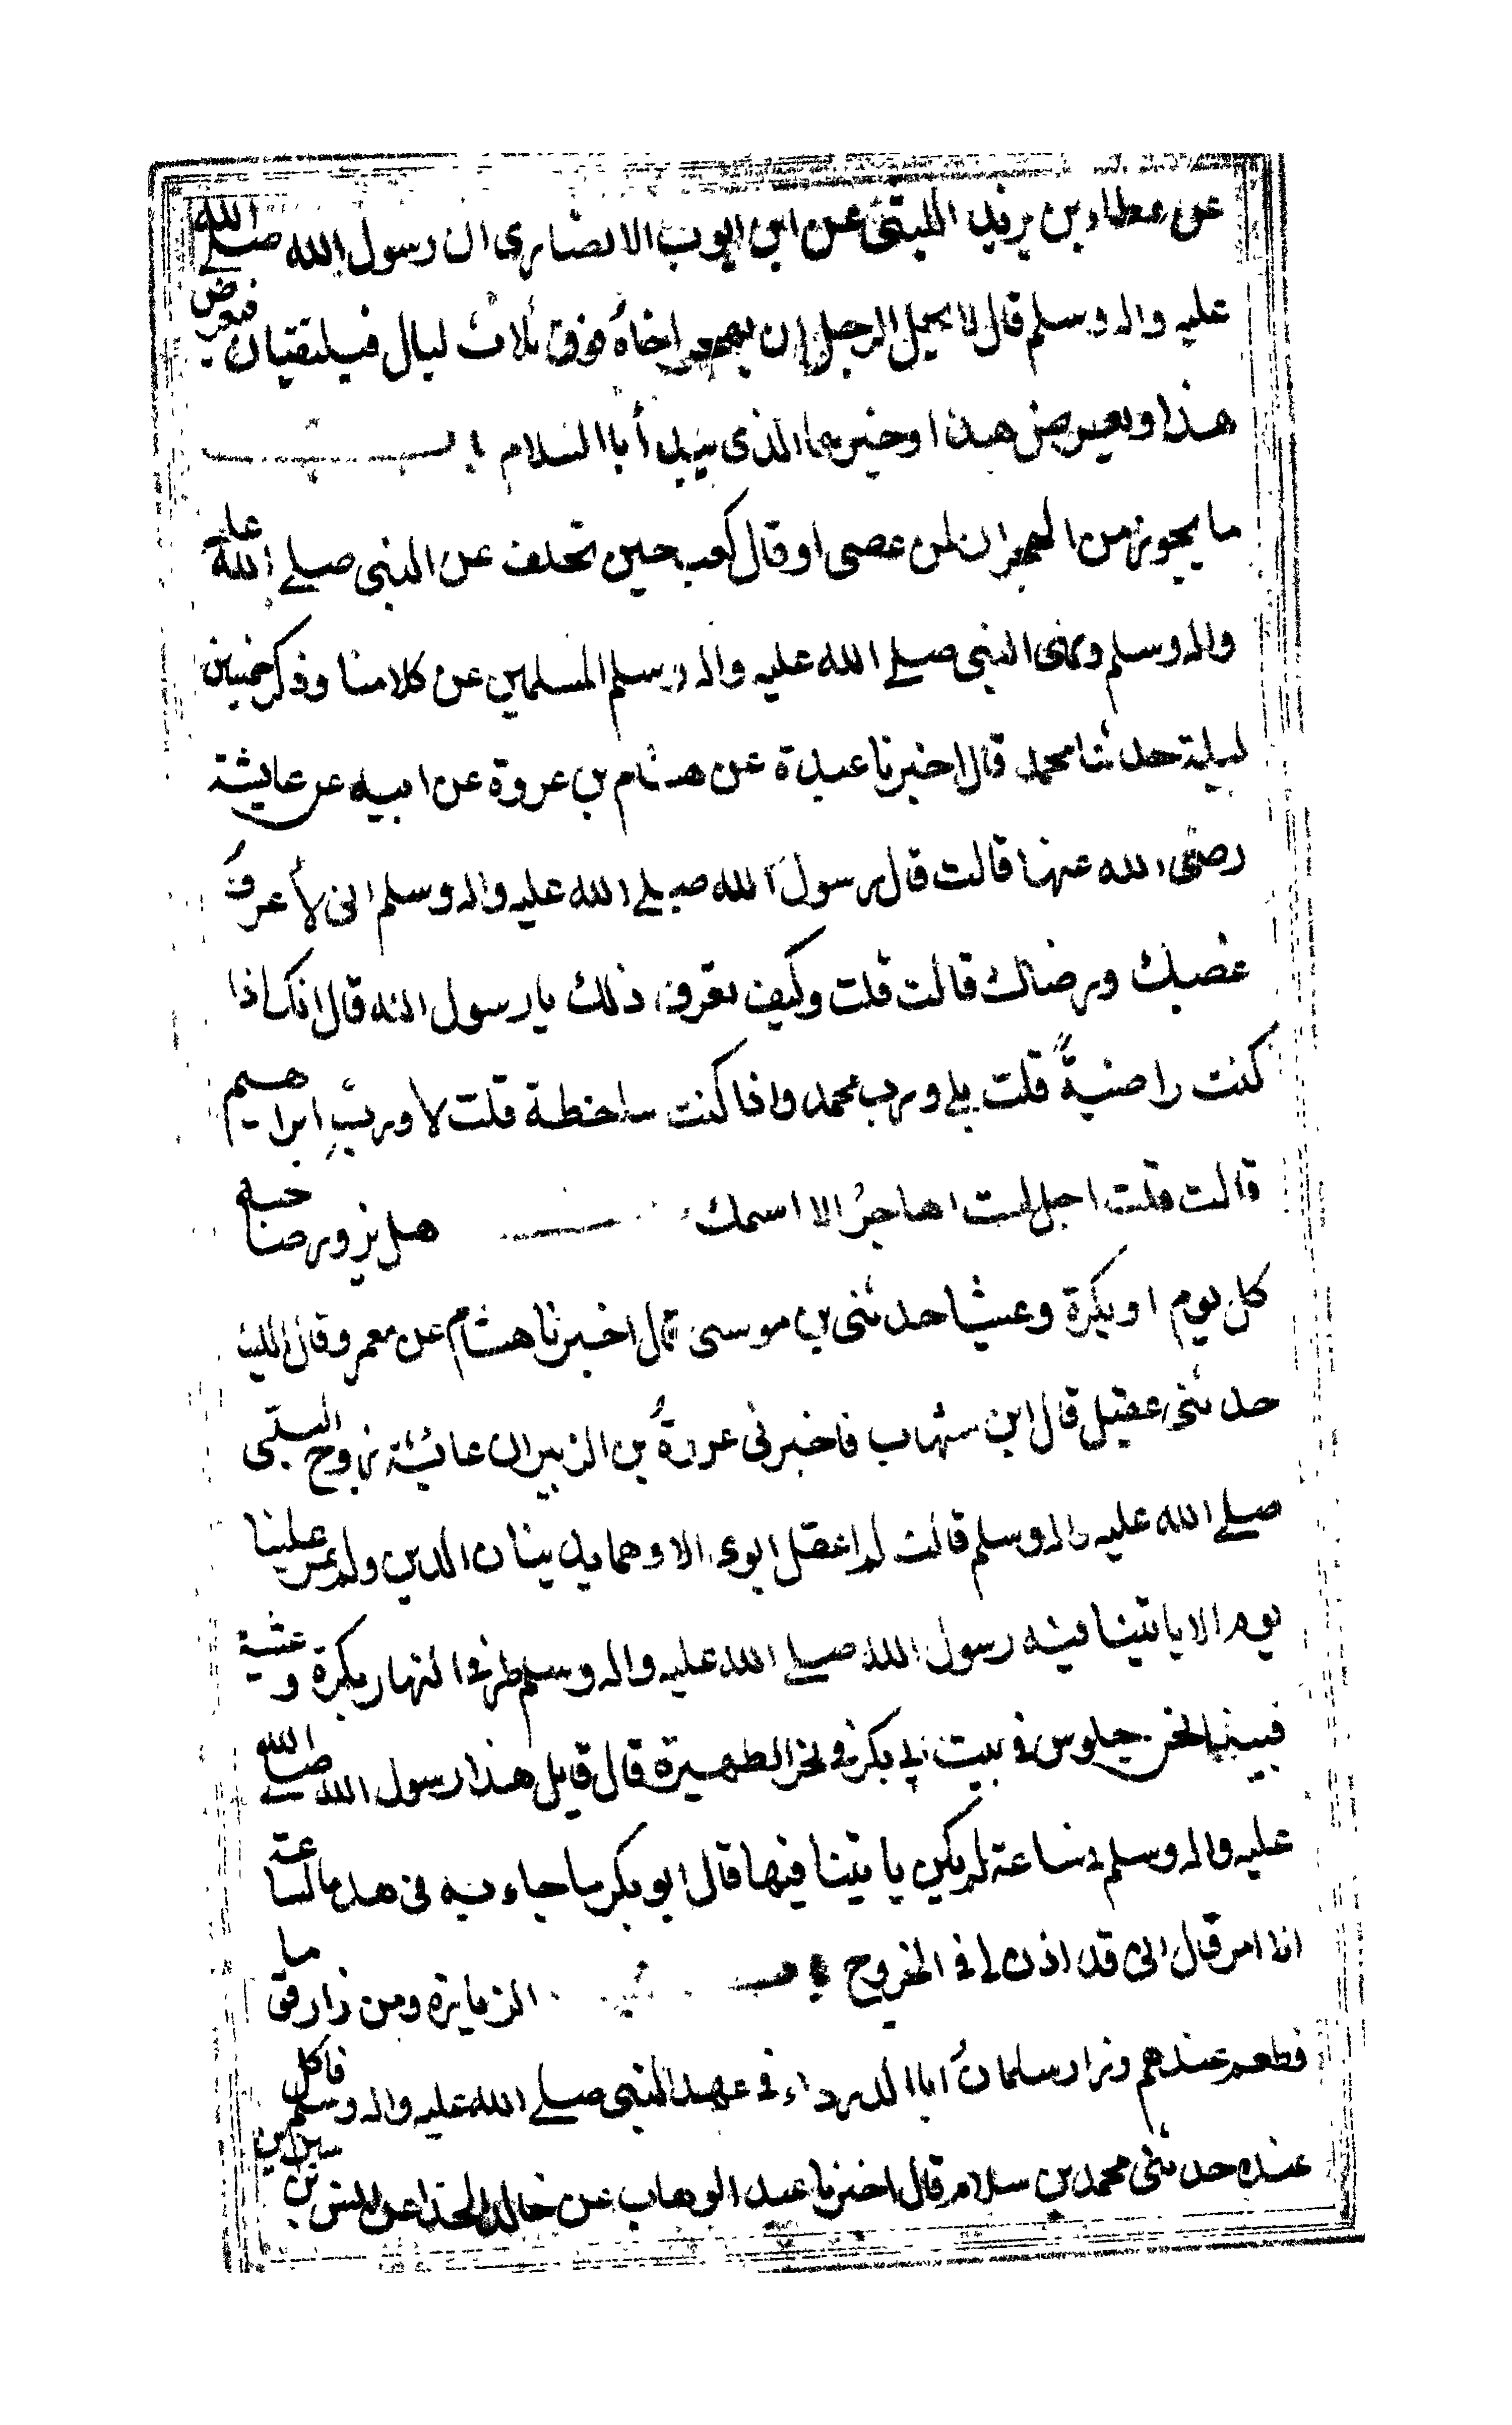 عن عطاء بن يزيد الليثى عن ابى ايوب الانصارى ان رسول الله صلے الله
عليه واله وسلم قال لا يحل لرجل ان يهجر اخاه فوق ثلاث ليال فيلتقيان فيعرض
هذا ويعرض هذا وخيرهما الذى يبدأ بالسلام
ما يجوز من الهجران لمن عصى وقال كعب حين تخلف عن النبى صلے الله عليه
واله وسلم ونهى النبى صلے الله عليه واله وسلم المسلمين عن كلامنا وذكر خمسين
ليلة حدثنا محمد قال اخبرنا عبدة عن هشام بن عروة عن ابيه عن عايشة
رضى الله عنها قالت قال رسول الله صلے الله عليه واله وسلم انى لأعرف
غضبك ورضاك قالت قلت وكيف تعرف ذلك يا رسول الله قال انك اذا
كنت راضيةً قلت بلے ورب محمد واذا كنت ساخطة قلت لا ورب ابراهيم
قالت قلت اجل لست اهاجرُ الا اسمك هل يزور صاحبه
كل يوم او بكرة وعشيا حدثنى بن موسى قال اخبرنا هشام عن معمر وقال الليث
حدثنى عقيل قال ابن شهاب فاخبرنى عروةُ بن الزبير ان عائشة زوج النبى
صلے الله عليه واله وسلم قالت لم اعقل ابوى الا وهما يدينان الدين ولم يمر علينا
يوم الا ياتينا فيه رسول الله صلے الله عليه واله وسلم طرفى النهار بكرة وعشية
فبينما نحن جلوس فى بيت ابى بكر فى نحر الظهيرة قال قايل هذا رسول الله صلے الله
عليه واله وسلم فى ساعة لم يكن ياتينا فيها قال ابو بكر ما جاء به فى هذه الساعة
الا امر قال انى قد اذن لى فى الخروج الزيارة ومن زار قوما
فطعم عندهم وزار سلمانُ ابا الدرداء فى عهد النبى صلے الله عليه واله وسلم فاكل
عنده حدثنى محمد بن سلام قال اخبرنا عبد الوهاب عن خالد الحذا عن انس بن سيرين